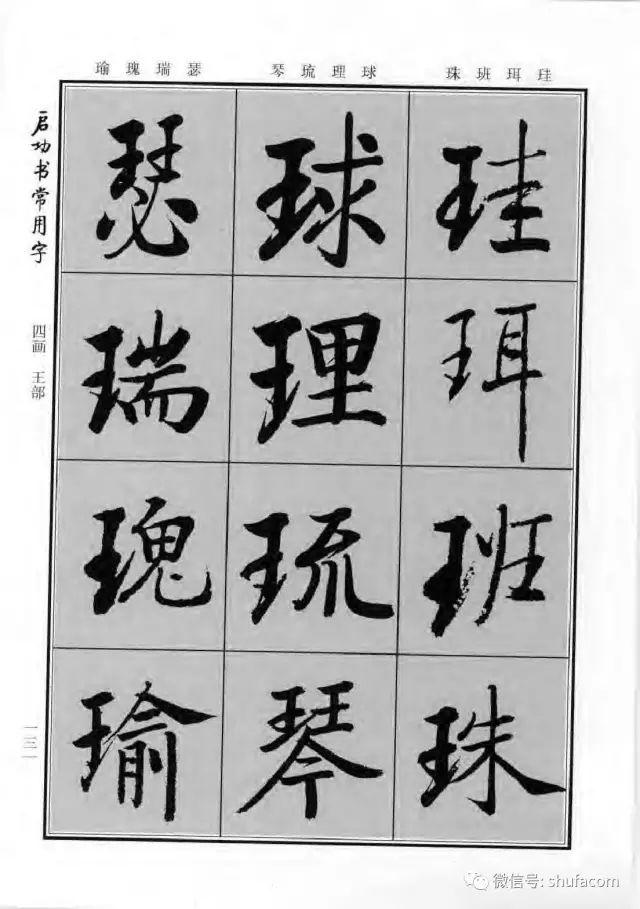 瑜瑰瑞瑟 琴琉理球 珠班珥珪
启功书常用字
四画 王部
一三一
瑟 球 珪
瑞 理 珥
瑰 琉 班
瑜 琴 珠
微信号: shufacom